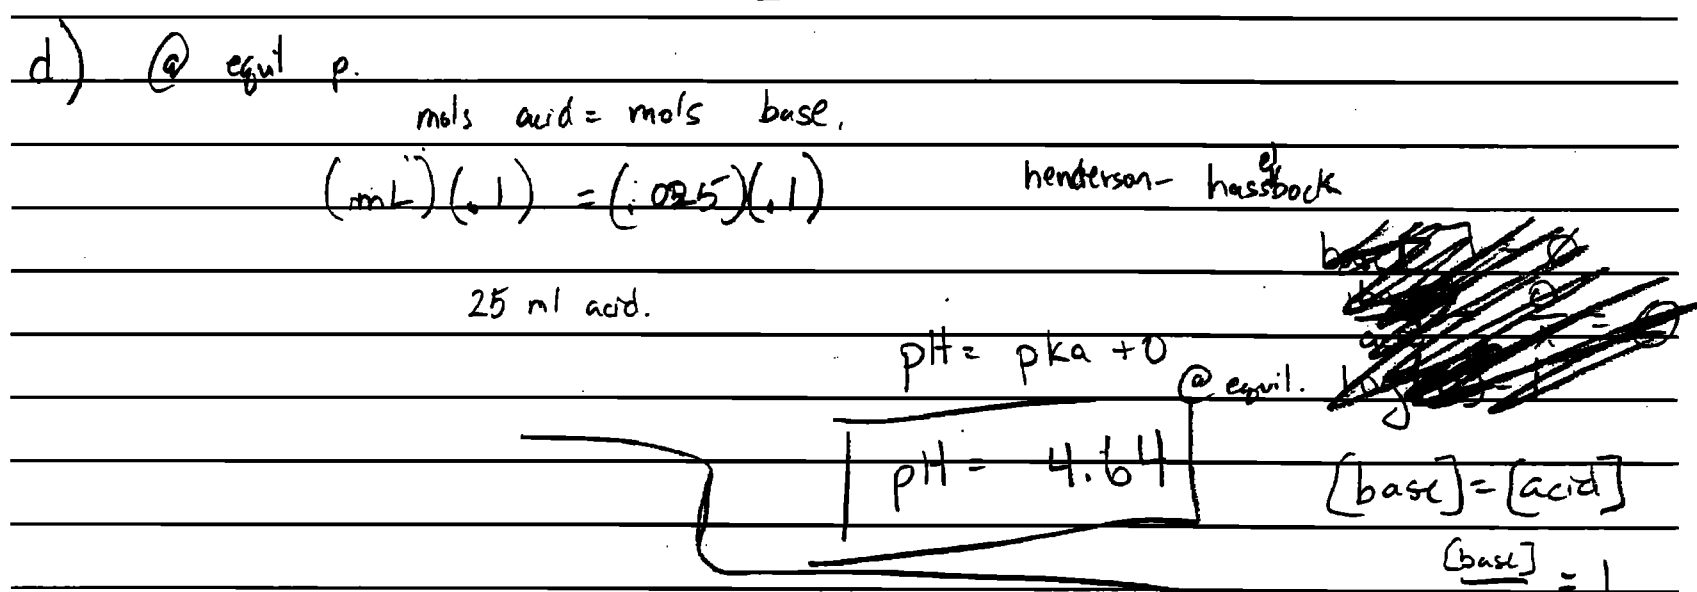 d) @ equil p.
mols acid = mols base.
(mL)(.1) = (.025)(.1)
henderson- hasselbock
25 ml acid.
pH = pka + 0
@ equil.
pH = 4.64
[base] = [acid]
[base] = 1